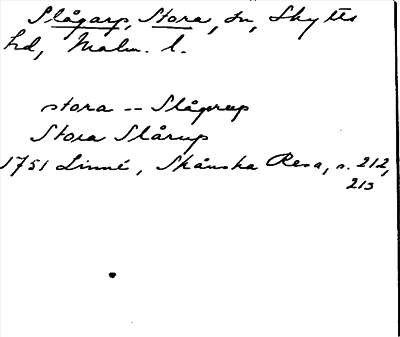 Slågarp, Stora, sn, Skytts
hd, Malm. l.
stora -- Slågrup
Stora Slårup
1751 Linné, Skånska Resa, s. 212,
213